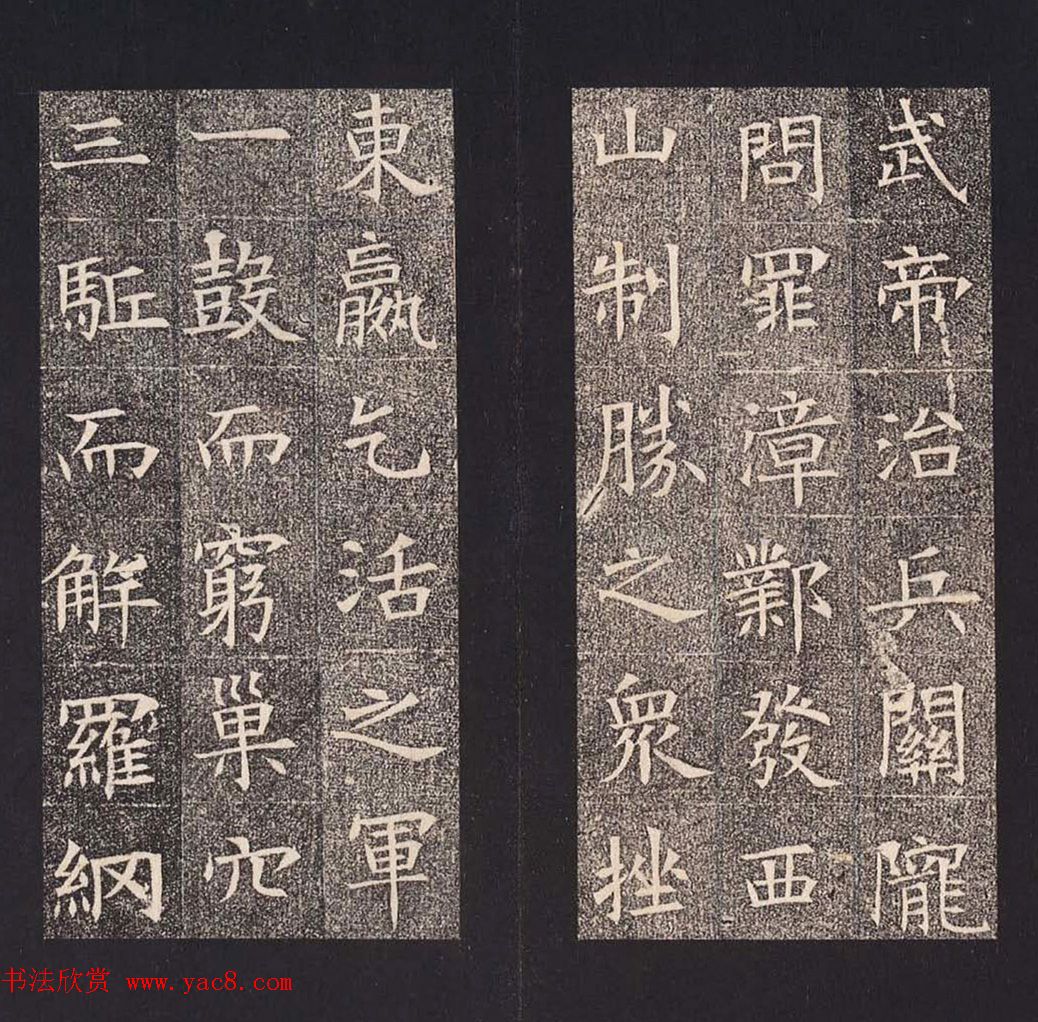 武帝治兵關隴
問罪漳鄴發西
山制勝之眾挫
東嬴乞活之軍
一鼓而窮巢穴
三駈而解羅網
书法欣赏 www.yac8.com